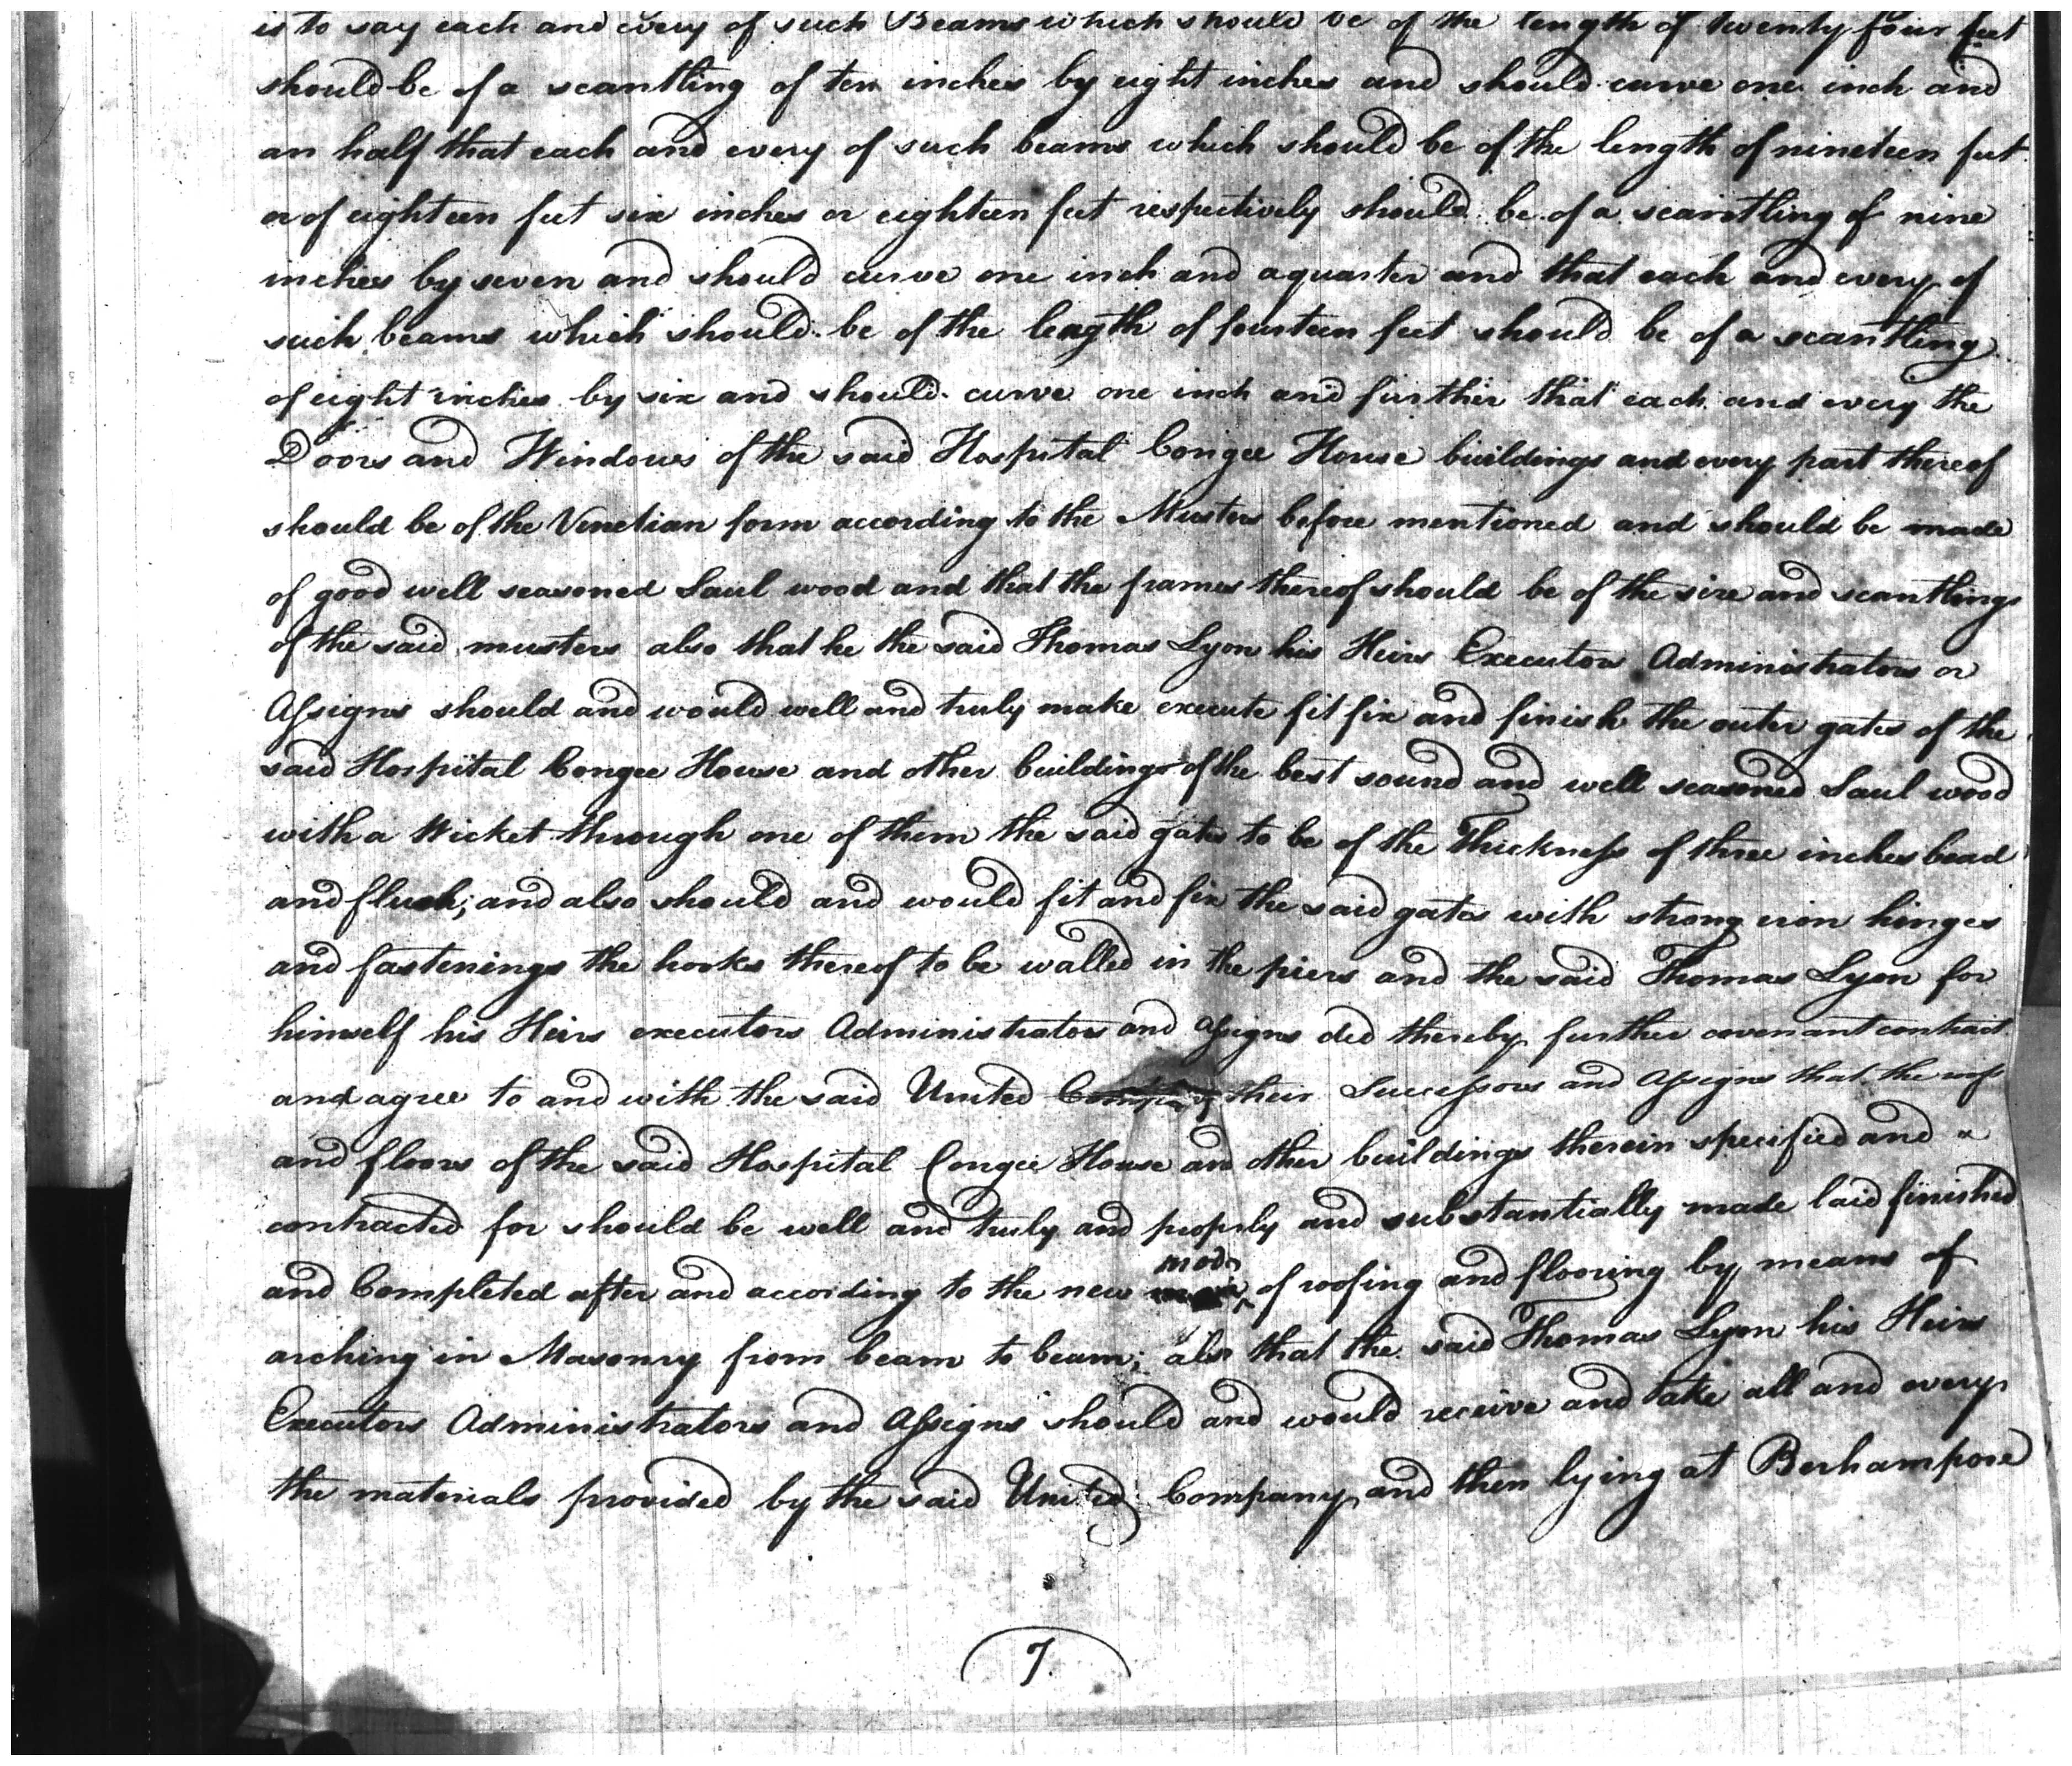 is to say each and every of such Beams which should be of the length of twenty four feet
should be of a scantling of ten inches by eight inches and should curve one inch and
an half that each and every of such beams which should be of the length of nineteen feet
or of eighteen feet six inches or eighteen feet respectively should be of a scantling of nine
inches by seven and should curve one inch and a quarter and that each and every of
such beams which should be of the length of fourteen feet should be of a scantling
of eight inches by six and should curve one inch and further that each and every the
Doors and Windows of the said Hospital Congee House buildings and every part thereof
should be of the Venetian form according to the Musters before mentioned and should be made
of good well seasoned Saul wood and that the frames thereof should be of the size and scantlings
of the said musters also that he the said Thomas Lyon his Heirs Executors Administrators or
Assigns should and would well and truly make execute fit fix and finish the outer gates of the
said Hospital Congee House and other buildings of the best sound and well seasoned Saul wood
with a Wicket through one of them the said gates to be of the Thickness of three inches bead
and flush; and also should and would fit and fix the said gates with strong iron hinges
and fastenings the hooks thereof to be walled in the piers and the said Thomas Lyon for
himself his Heirs executors Administrators and Assigns did thereby further covenant contract
and agree to and with the said United Company their Successors and Assigns that the roofs
and floors of the said Hospital Congee House and other buildings therein specified and
contracted for should be well and truly and properly and substantially made laid finished
and Completed after and according to the new mode of roofing and flooring by means of
arching in Masonry from beam to beam; also that the said Thomas Lyon his Heirs
Executors Administrators and Assigns should and would receive and take all and every
the materials provided by the said United Company and then lying at Berhampore
7.